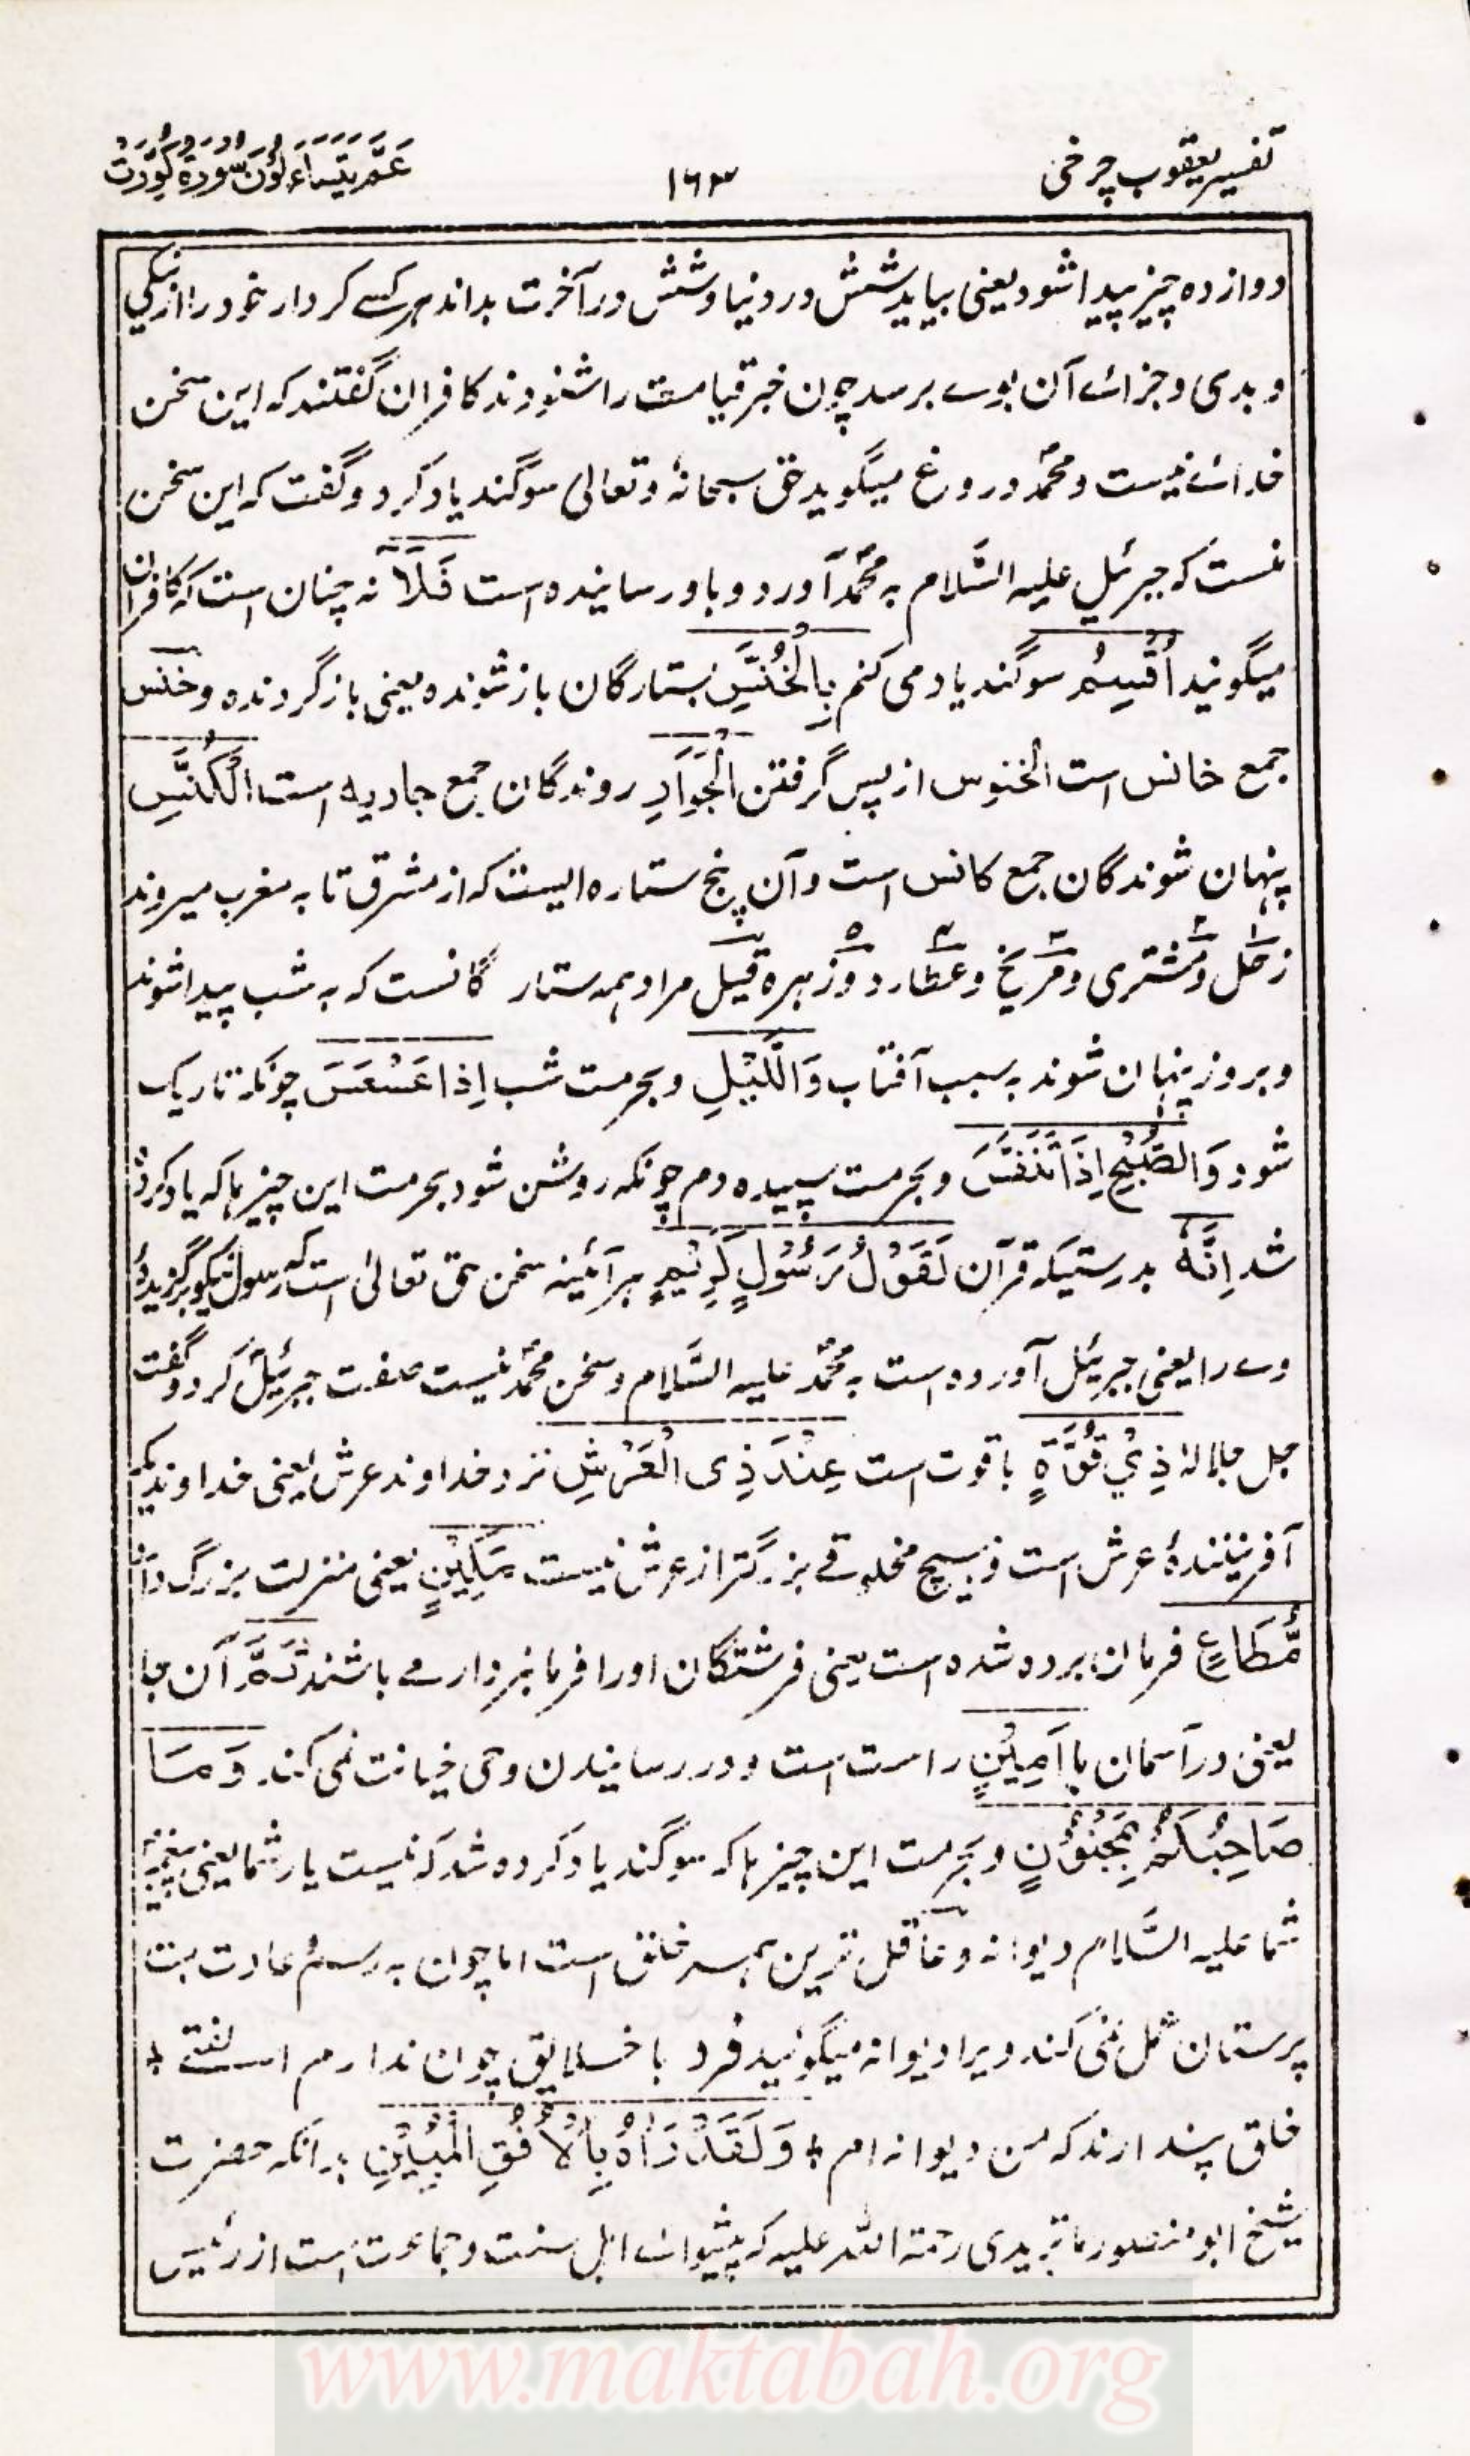 تفسیر یعقوب چرخی
۱۶۳
عَمَّ یَتَسَاءَلُوْنَ سُوْرَةُ کُوِّرَتْ
دوازده چیز پیدا شود یعنی بیاید شش در دنیا و شش در آخرت بداند هر کسے کردار خود را از نیکی
و بدی و جزاے آن بوے برسد چون خبر قیامت را شنودند کافران گفتند که این سخن
خداے نیست و محمدؐ دروغ میگوید حق سبحانهٗ و تعالی سوگند یاد کرد و گفت که این سخن
منست که جبرئیل علیه السَّلام به محمدؐ آورد و باو رسانیده است فَلَآ نه چنان است که کافران
میگویند اُقْسِمُ سوگند یاد می کنم بِالْخُنَّسِ بستارگان باز شونده یعنی باز گردنده و خنس
جمع خانس است الخنوس از پس گرفتن الْجَوَارِ روندگان جمع جاریه است الْکُنَّسِ
پنهان شوندگان جمع کانس است و آن پنج ستاره ایست که از مشرق تا به مغرب میروند
زحل ۱ و مشتری ۲ و مریخ ۳ و عطارد ۴ و زهره ۵ قیل مراد همه ستارگانست که به شب پیدا شوند
و بروز پنهان شوند به سبب آفتاب وَالَّیْلِ و بحرمت شب اِذَا عَسْعَسَ چونکه تاریک
شود وَالصُّبْحِ اِذَا تَنَفَّسَ و بحرمت سپیده دم چونکه روشن شود بحرمت این چیزها که یاد کرده
شد اِنَّهٗ بدرستیکه قرآن لَقَوْلُ رَسُوْلٍ کَرِیْمٍ هر آئینه سخن حق تعالیٰ است که رسول نیکو برگزیدهٔ
وے را یعنی جبرئیل آورده است به محمدؐ علیه السَّلام و سخن محمدؐ نیست صفت جبرئیلؑ کرد و گفت
جل جلاله ذِیْ قُوَّةٍ باقوت است عِنْدَ ذِی الْعَرْشِ نزد خداوند عرش یعنی خداوندیکه
آفرینندهٔ عرش است و هیچ مخلوقے بزرگتر از عرش نیست مَکِیْنٍ یعنی منزلت بزرگ دارد
مُّطَاعٍ فرمان برده شده است یعنی فرشتگان او را فرمانبردار مے باشند ثَمَّ آن جا
یعنی در آسمان ها اَمِیْنٍ راست است و در رسانیدن وحی خیانت نمی کند. وَمَا
صَاحِبُکُمْ بِمَجْنُوْنٍ و بحرمت این چیزها که سوگند یاد کرده شد که نیست یار شما یعنی پیغمبر
شما علیه السَّلام دیوانه و عاقل ترین همه خلق است اما چون به رسم عادت بت
پرستان عمل نمی کند ویرا دیوانه میگویند فرد با خلایق چون ندارم الفتے ٭
خلق پندارند که من دیوانه ام ٭ وَلَقَدْ رَاٰهُ بِالْاُفُقِ الْمُبِیْنِ بدانکه حضرت
شیخ ابو منصور ماتریدی رحمة اللّٰه علیه که پیشواے اهل سنت و جماعت است از رئیس
www.maktabah.org